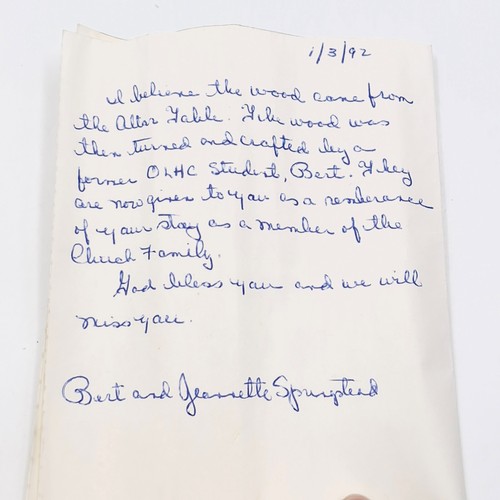 1/3/92
I believe the wood came from
the Altar Table. The wood was
then turned and crafted by a
former OLHC Student, Bert. They
are now given to you as a rememberance
of your stay as a member of the
Church Family.
God bless you and we will
miss you.
Bert and Jeannette Springstead